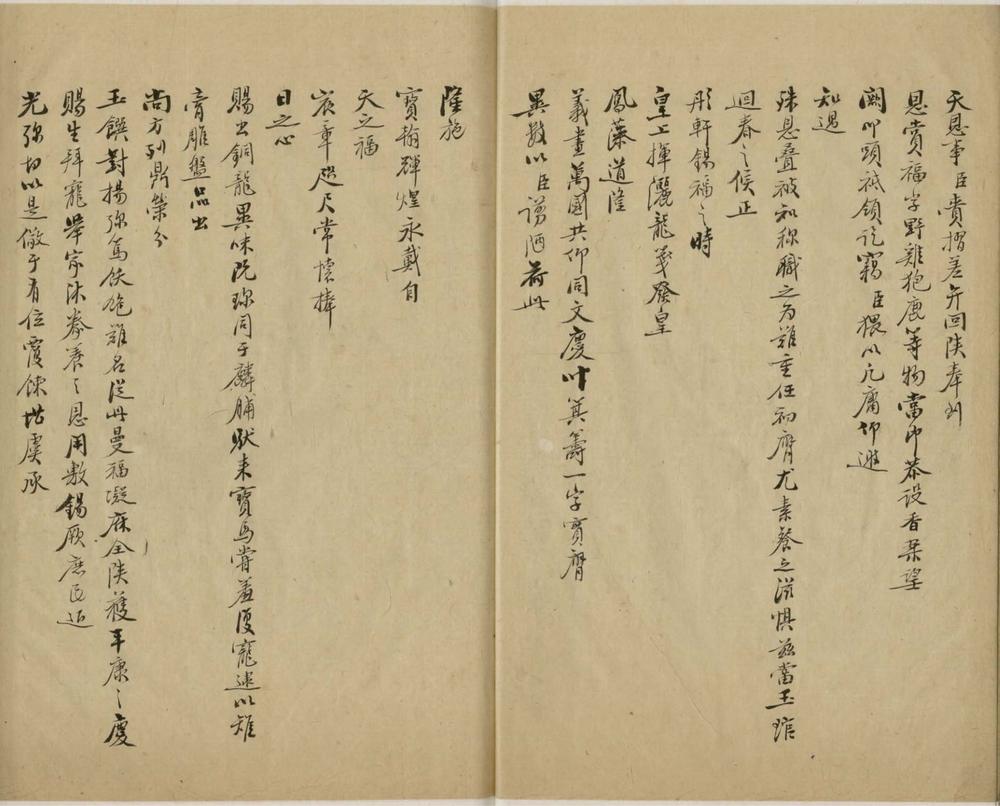 天恩事臣賫摺差弁回陕奉到
恩賞福字野雞狍鹿等物當即恭設香案望
闕叩頭祗領訖竊臣猥以凡庸仰邀
知遇
殊恩叠被初称職之为難重任初膺尤素餐之滋惧兹當玉琯
迴春之候正
彤軒錫福之時
皇上揮灑龍箋發皇
鳳藻道隆
羲畫萬國共仰同文慶叶箕籌一字實膺
異数以臣谫陋荷此
隆施
寶翰輝煌永戴自
天之福
宸章咫尺常懐捧
日之心
賜出銅龍異味既珍同于麟脯馱来寳馬嘗羞復寵逮以雉
膏雕盤品出
尚方列鼎榮分
玉饌對揚弥篤飫飽難名従此曼福凝庥全陕獲平康之慶
賜生拜寵举家沐豢養之恩用敷錫厥庶民近
光弥切以是儆于有位覆餗堪虞承